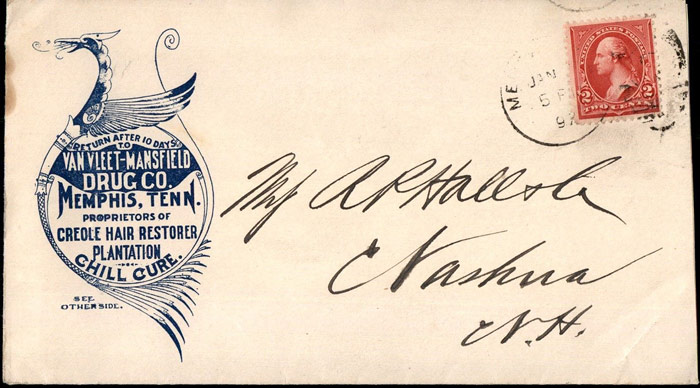 RETURN AFTER 10 DAYS
TO
VAN VLEET-MANSFIELD
DRUG CO.
MEMPHIS, TENN.
PROPRIETORS OF
CREOLE HAIR RESTORER
PLANTATION
CHILL CURE.
SEE
OTHER SIDE.
ME
JAN
5 P
97
UNITED STATES POSTAGE
2 2
TWO CENTS
A R
Nashua
N.H.